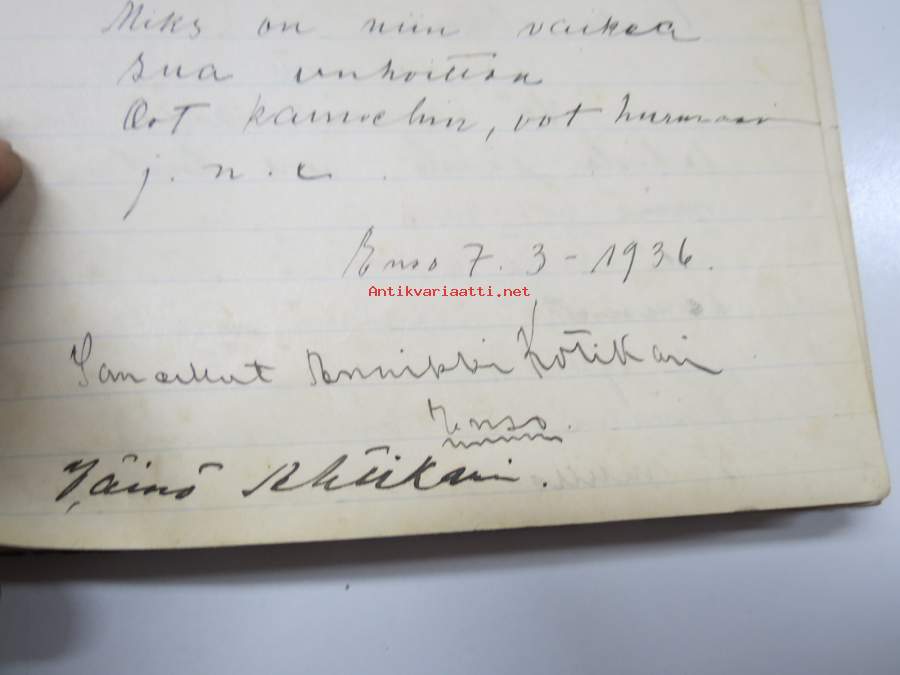 Miks on niin vaikea
sua unhoittaa
Oot kaunehin, oot hurmaavin
j. n. e.
Enso 7. 3 - 1936.
Antikvariaatti.net
Kötikari
Enso.
Väinö